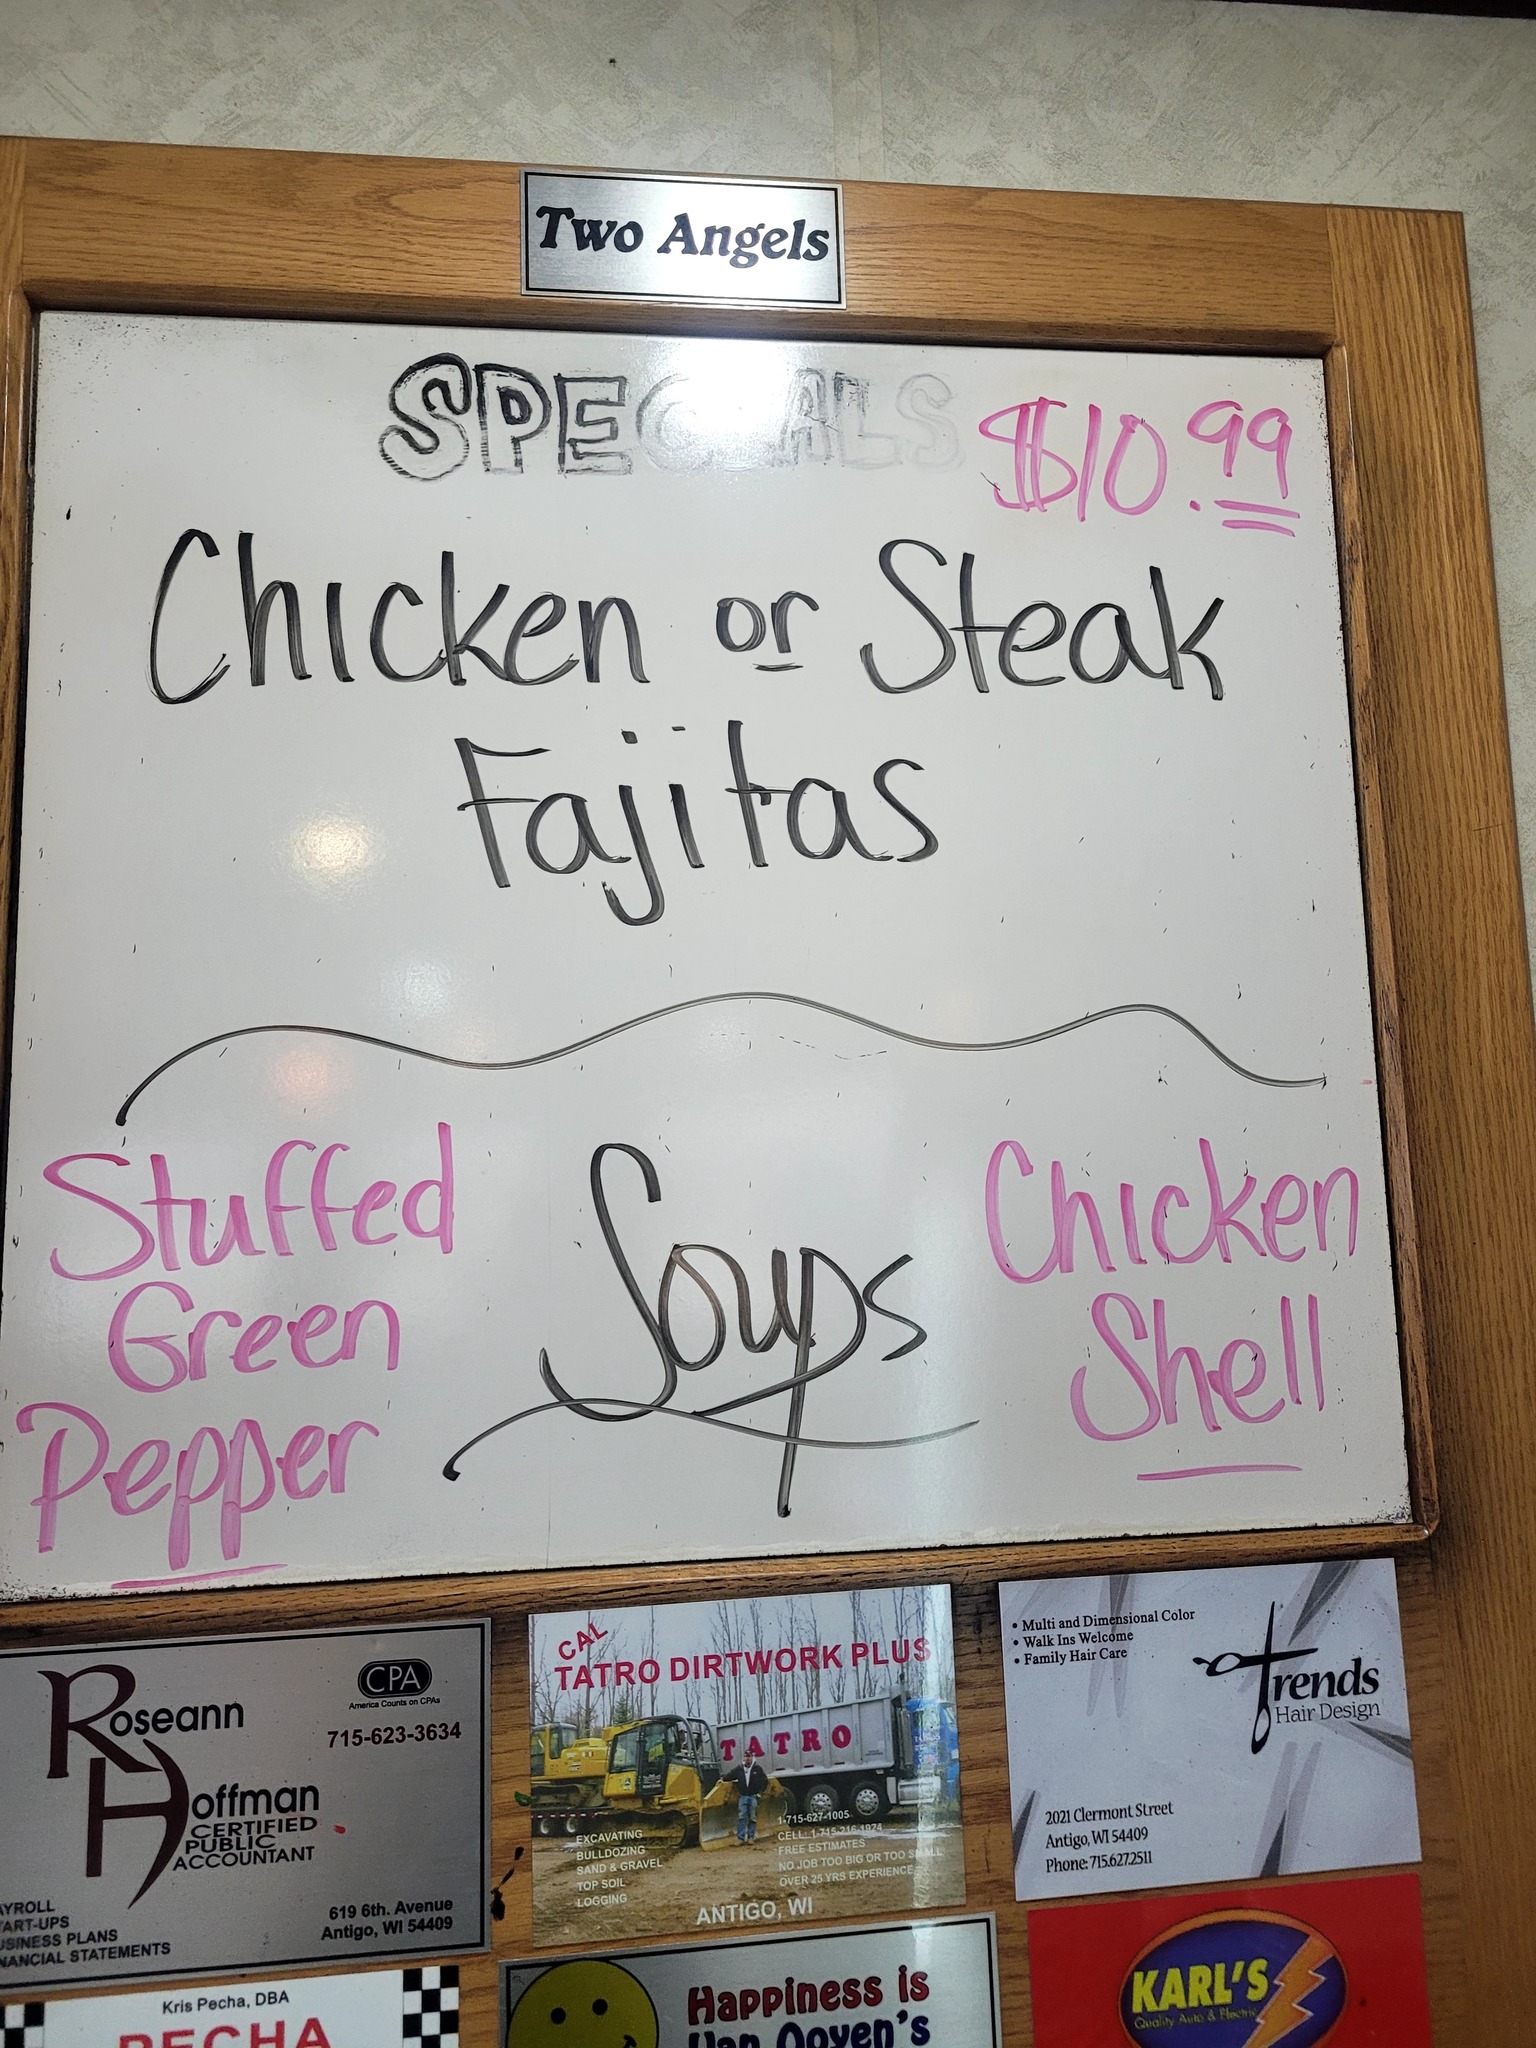 Two Angels
SPECIALS
$10.99
Chicken or Steak
Fajitas
Stuffed
Green
Pepper
Soups
Chicken
Shell
Roseann
Hoffman
CERTIFIED
PUBLIC
ACCOUNTANT
CPA
America Counts on CPAs
715-623-3634
619 6th. Avenue
Antigo, WI 54409
BUSINESS PLANS
FINANCIAL STATEMENTS
CAL
TATRO DIRTWORK PLUS
TATRO
EXCAVATING
BULLDOZING
SAND & GRAVEL
TOP SOIL
LOGGING
1-715-627-1005
CELL: 1-715-216-1974
FREE ESTIMATES
NO JOB TOO BIG OR TOO SMALL
OVER 25 YRS EXPERIENCE
ANTIGO, WI
• Multi and Dimensional Color
• Walk Ins Welcome
• Family Hair Care
Trends
Hair Design
2021 Clermont Street
Antigo, WI 54409
Phone: 715.627.2511
Kris Pecha, DBA
PECHA
Happiness is
Van Ooyen's
KARL'S
Quality Auto & Electric